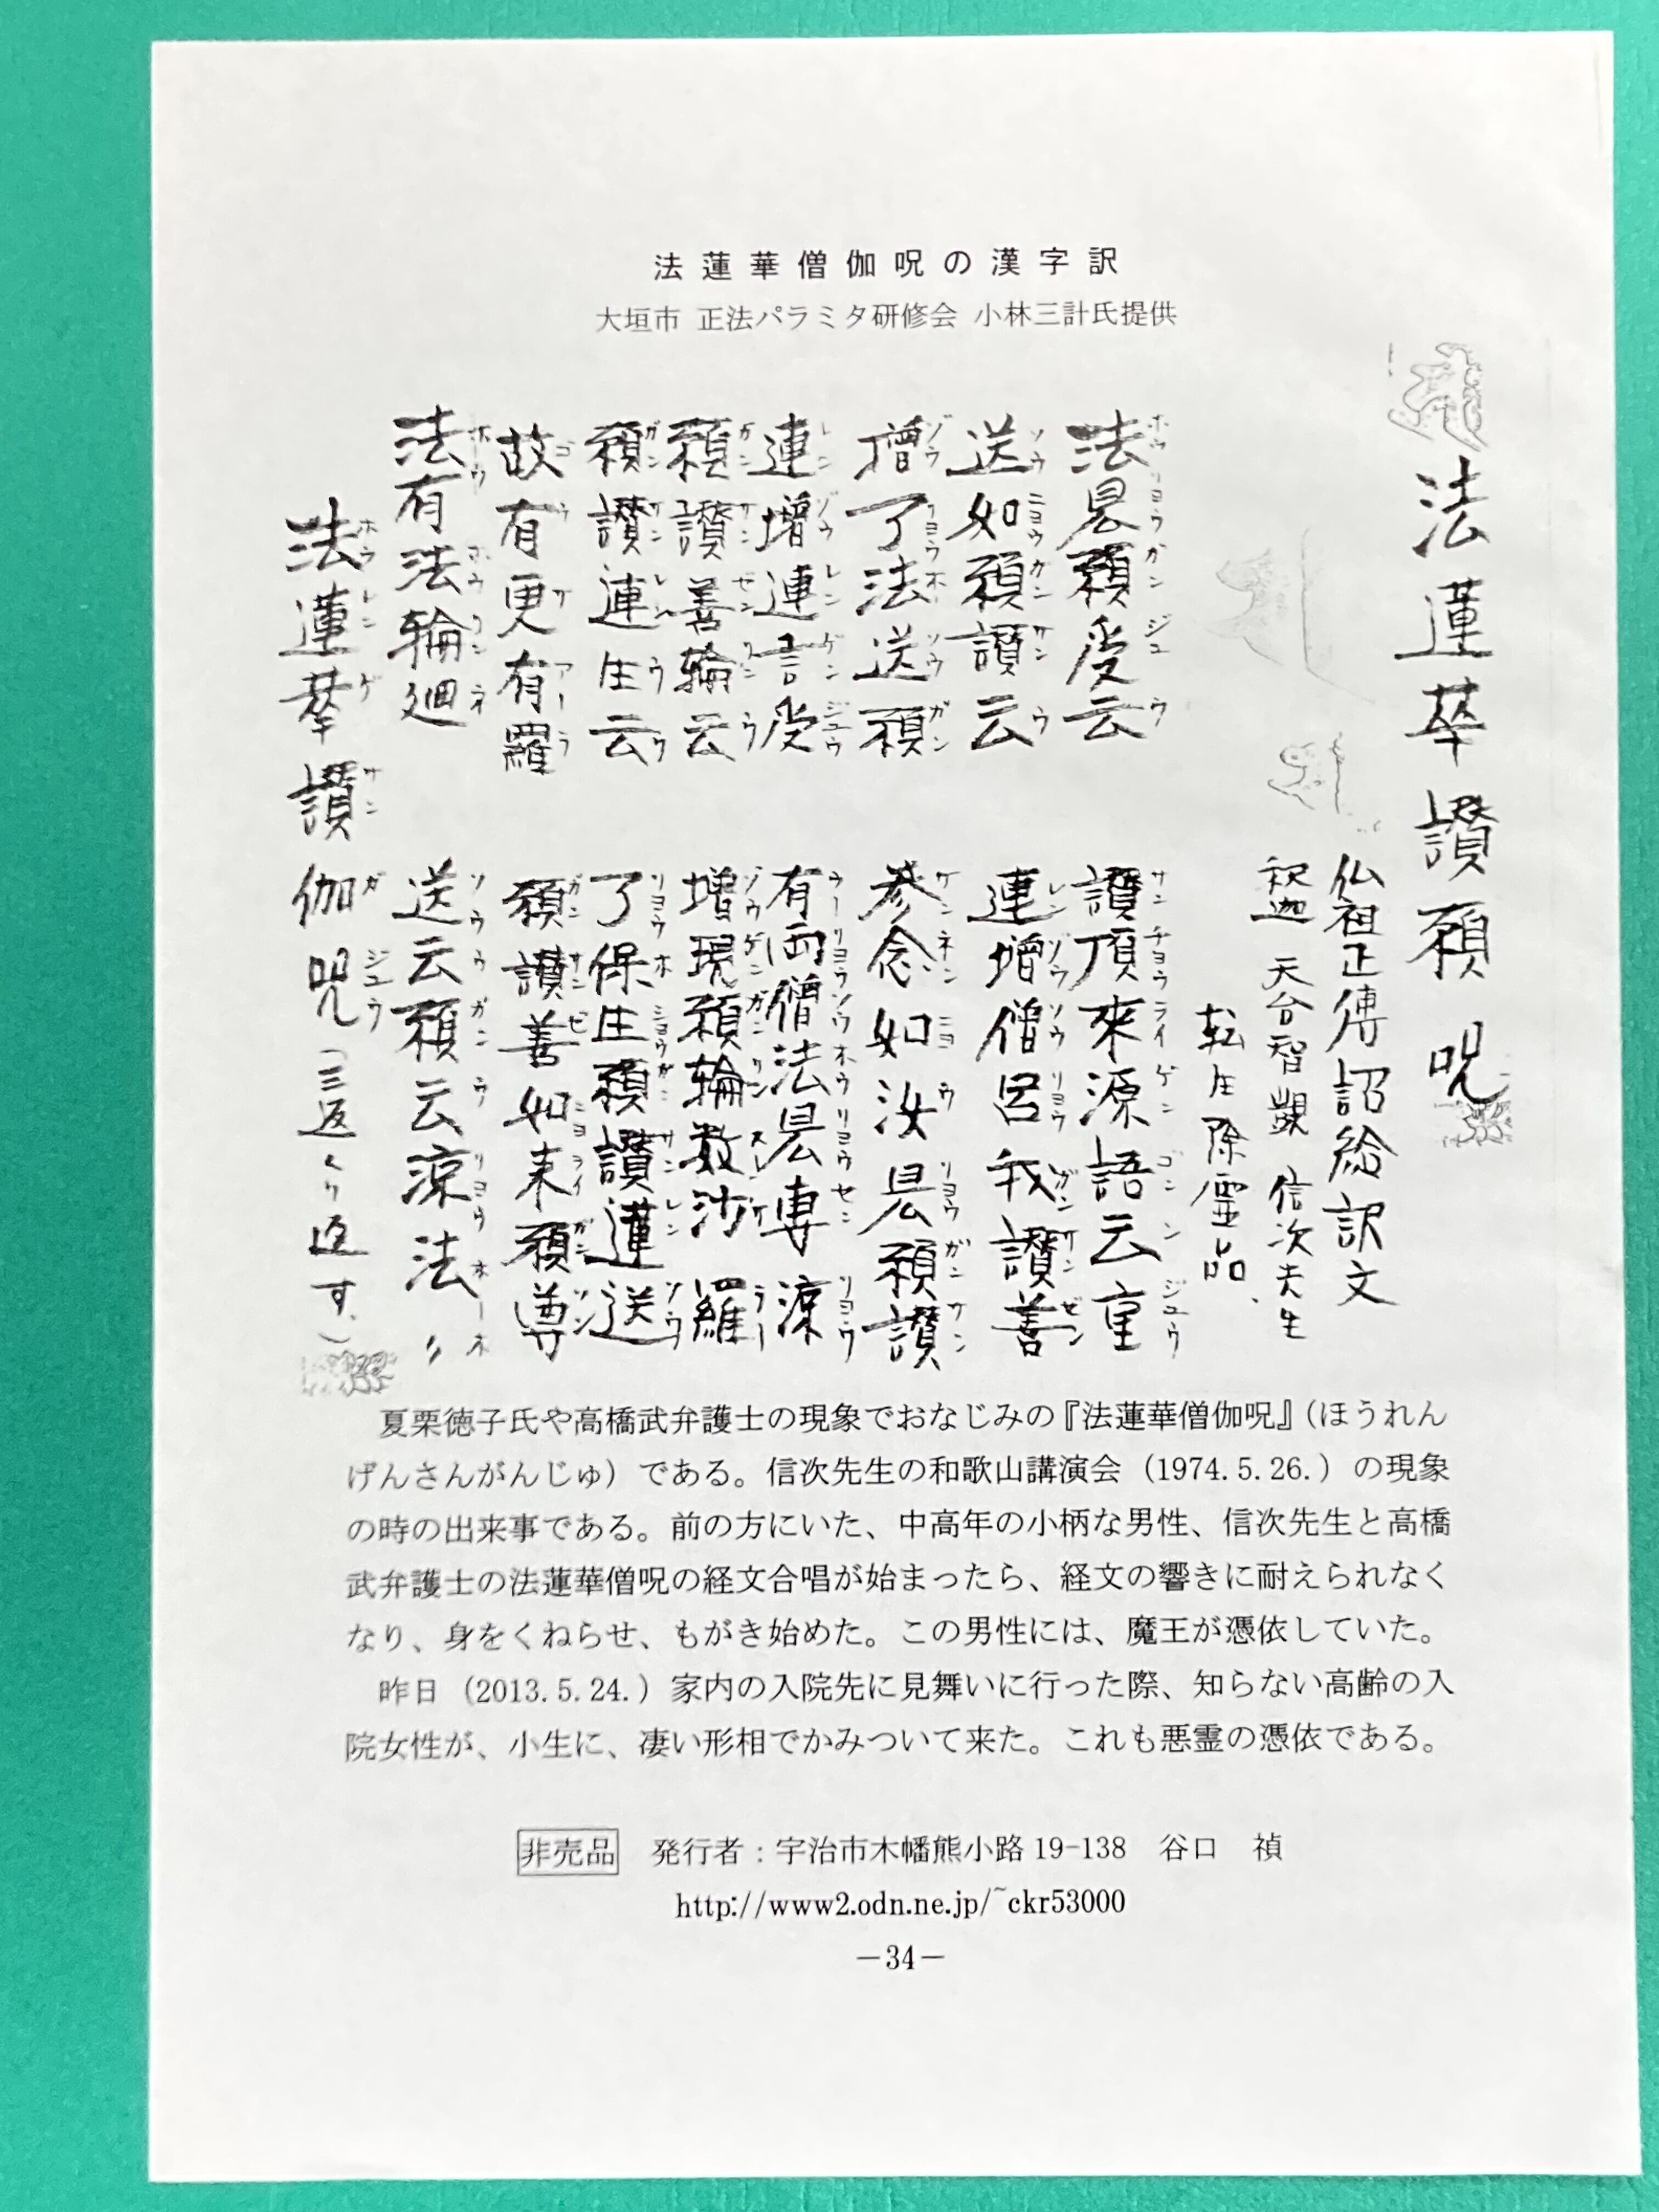 法蓮華僧伽呪の漢字訳
大垣市 正法パラミタ研修会 小林三計氏提供
法蓮華讃願呪
仏祖正傳詔給訳文
釈迦 天台智顗 信次先生
転生除霊品
法見願受云
讃頂來源語云重
送如願讃云
連増僧呂我讃善
増了法送願
参念如汝見願讃
連増連言受
有両僧法見専涼
願讃善輪云
増現願輪数沙羅
願讃連生云
了保生願讃蓮送
故有更有羅
願讃善如来願尊
法有法輪廻
送云願云涼法〃
法蓮華讃伽呪(三返くり返す。)
夏栗徳子氏や高橋武弁護士の現象でおなじみの『法蓮華僧伽呪』(ほうれん
げんさんがんじゅ)である。信次先生の和歌山講演会(1974.5.26.)の現象
の時の出来事である。前の方にいた、中高年の小柄な男性、信次先生と高橋
武弁護士の法蓮華僧呪の経文合唱が始まったら、経文の響きに耐えられなく
なり、身をくねらせ、もがき始めた。この男性には、魔王が憑依していた。
昨日(2013.5.24.)家内の入院先に見舞いに行った際、知らない高齢の入
院女性が、小生に、凄い形相でかみついて来た。これも悪霊の憑依である。
非売品 発行者:宇治市木幡熊小路19-138 谷口 禎
http://www2.odn.ne.jp/~ckr53000
—34—